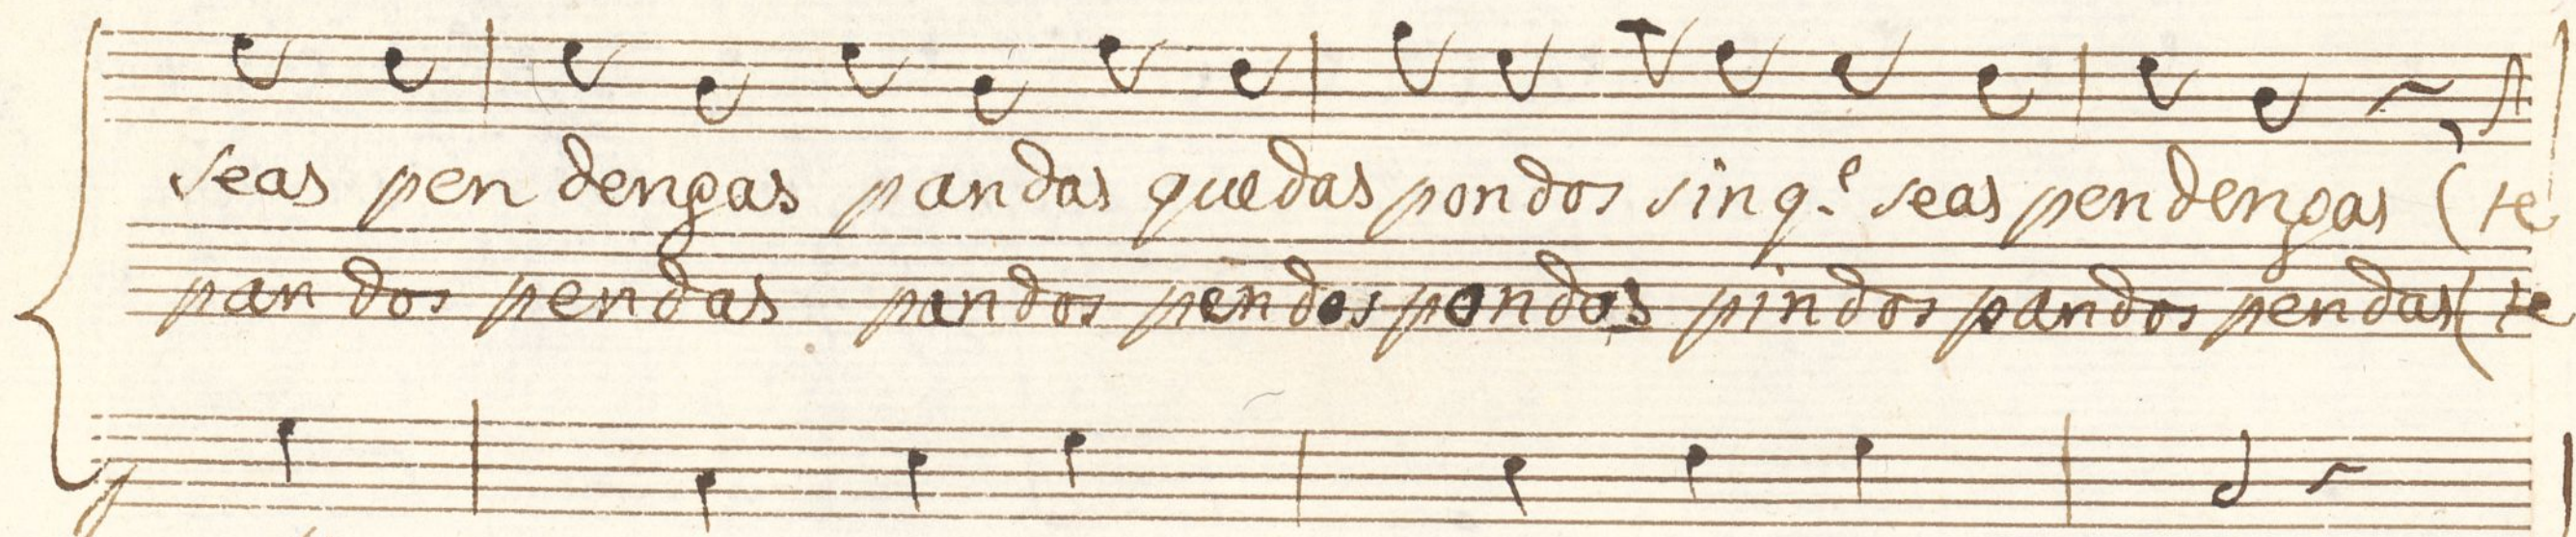 seas pen dengas pandas quedas pondos sin q.e seas pendengas (te
pan dos pendas pandos pendos pondos pindos pandos pendas (te